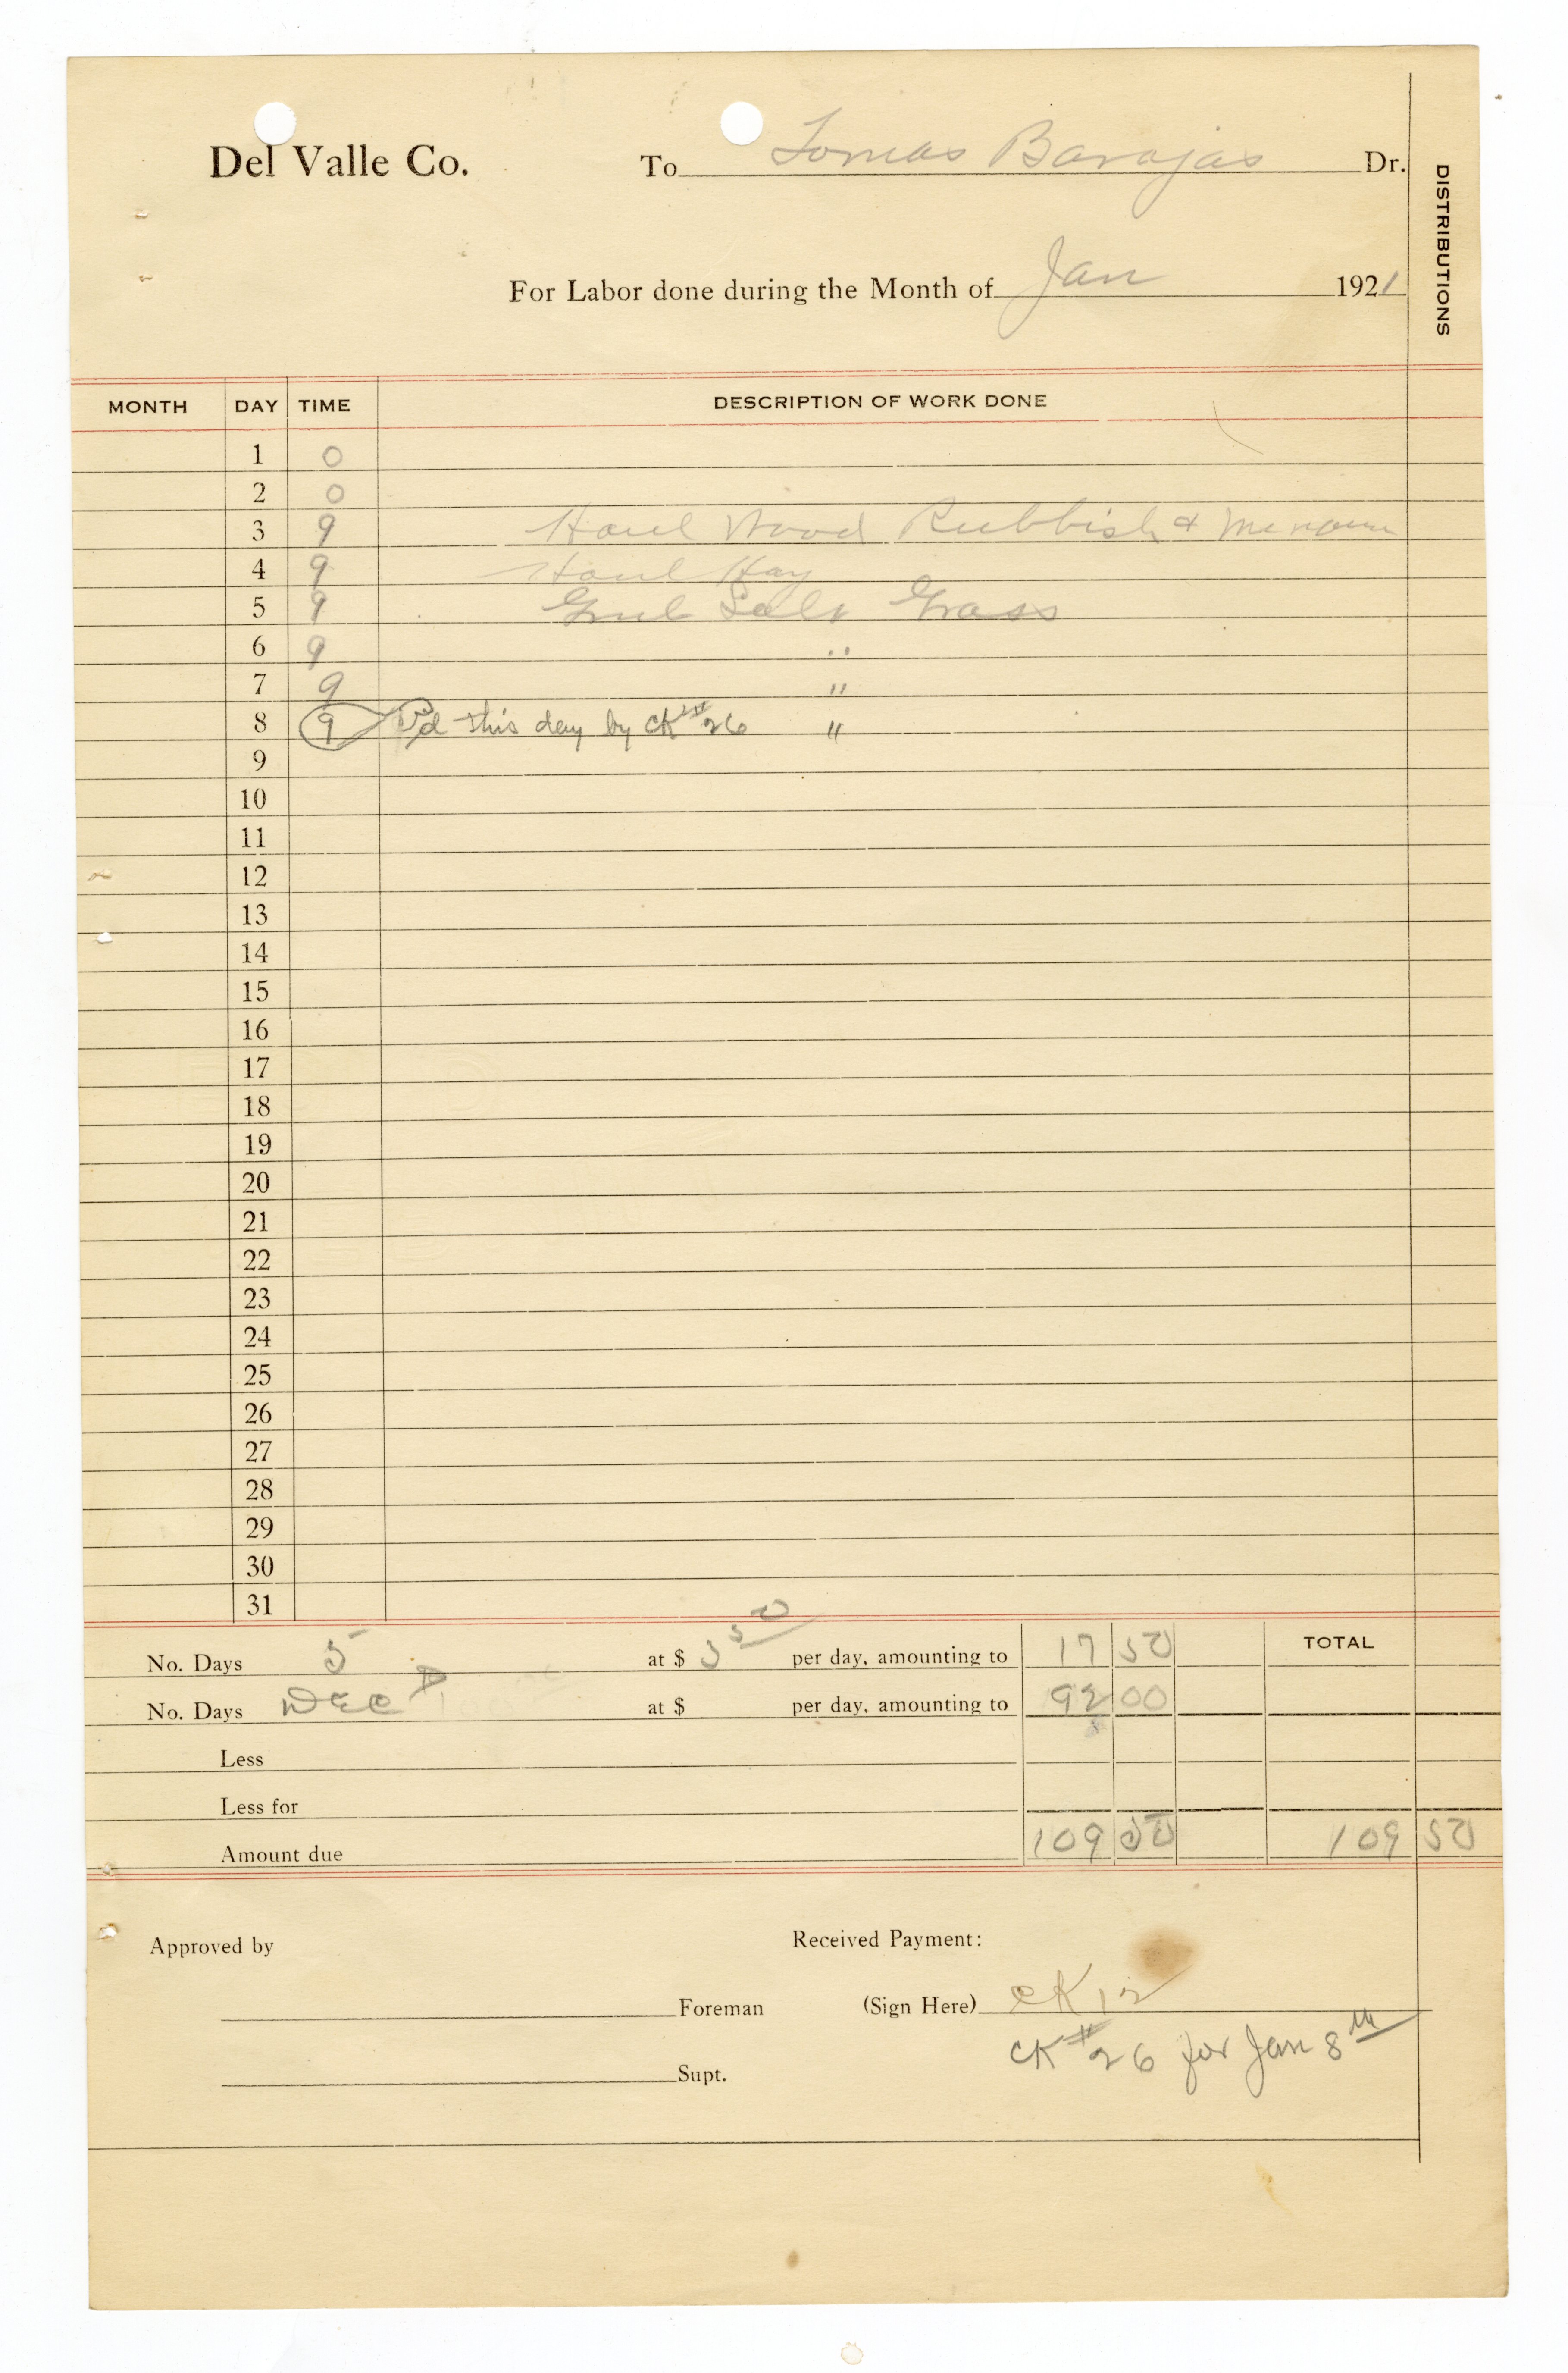 Del Valle Co. To Tomas Barajas Dr.
DISTRIBUTIONS
For Labor done during the Month of Jan 1921
MONTH DAY TIME DESCRIPTION OF WORK DONE
1 0
2 0
3 9 Haul Wood Rubbish &
4 9 Haul Hay
5 9 Grub Salt Grass
6 9 "
7 9 "
8 9 Pd this day by CK # 26 "
9
10
11
12
13
14
15
16
17
18
19
20
21
22
23
24
25
26
27
28
29
30
31
No. Days 5 at $ 3 50 per day, amounting to 17 50 TOTAL
No. Days DEC at $ per day, amounting to 92 00
Less
Less for
Amount due 109 50 109 50
Approved by Received Payment:
Foreman (Sign Here) CK 12
CK # 26 for Jan 8th
Supt.